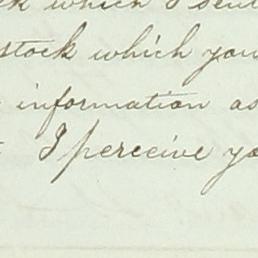 which I sent
stock which you
information as
I perceive yo